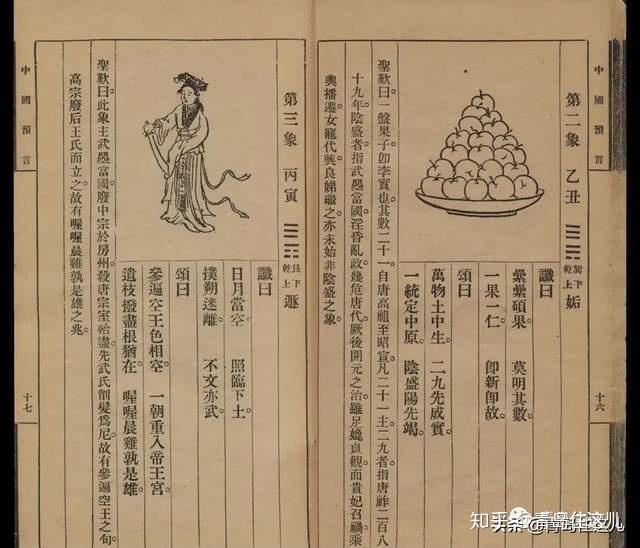 中國預言
十六
第二象 乙丑
巽下
乾上
姤
讖曰
纍纍碩果 莫明其數
一果一仁 即新即故。
頌曰
萬物土中生。 二九先成實。
一統定中原。 陰盛陽先竭。
聖歎曰。一盤果子即李實也。其數二十一。自唐高祖至昭宣。凡二十一主。二九者指唐祚二百八
十九年。陰盛者指武曌當國。淫昏亂政。幾危唐代。厥後開元之治。雖足媲貞觀。而貴妃召禍。乘
輿播遷。女寵代興。良娣繼之。亦未始非陰盛之象。
第三象 丙寅
艮下
乾上
遯
讖曰
日月當空。 照臨下土。
撲朔迷離 不文亦武。
頌曰
參遍空王色相空。 一朝重入帝王宮
遺枝撥盡根猶在。 喔喔晨雞孰是雄
聖歎曰。此象主武曌當國。廢中宗於房州。殺唐宗室殆盡。先武氏削髮爲尼。故有參遍空王之句。
高宗廢后王氏而立之。故有喔喔晨雞孰是雄之兆。
中國預言
十七
知乎 @青鸟住这儿